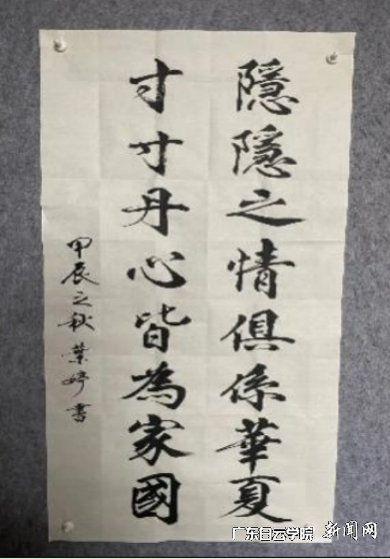 隱隱之情俱係華夏
寸寸丹心皆為家國
甲辰之秋 葉婷書
广东白云学院 新闻网